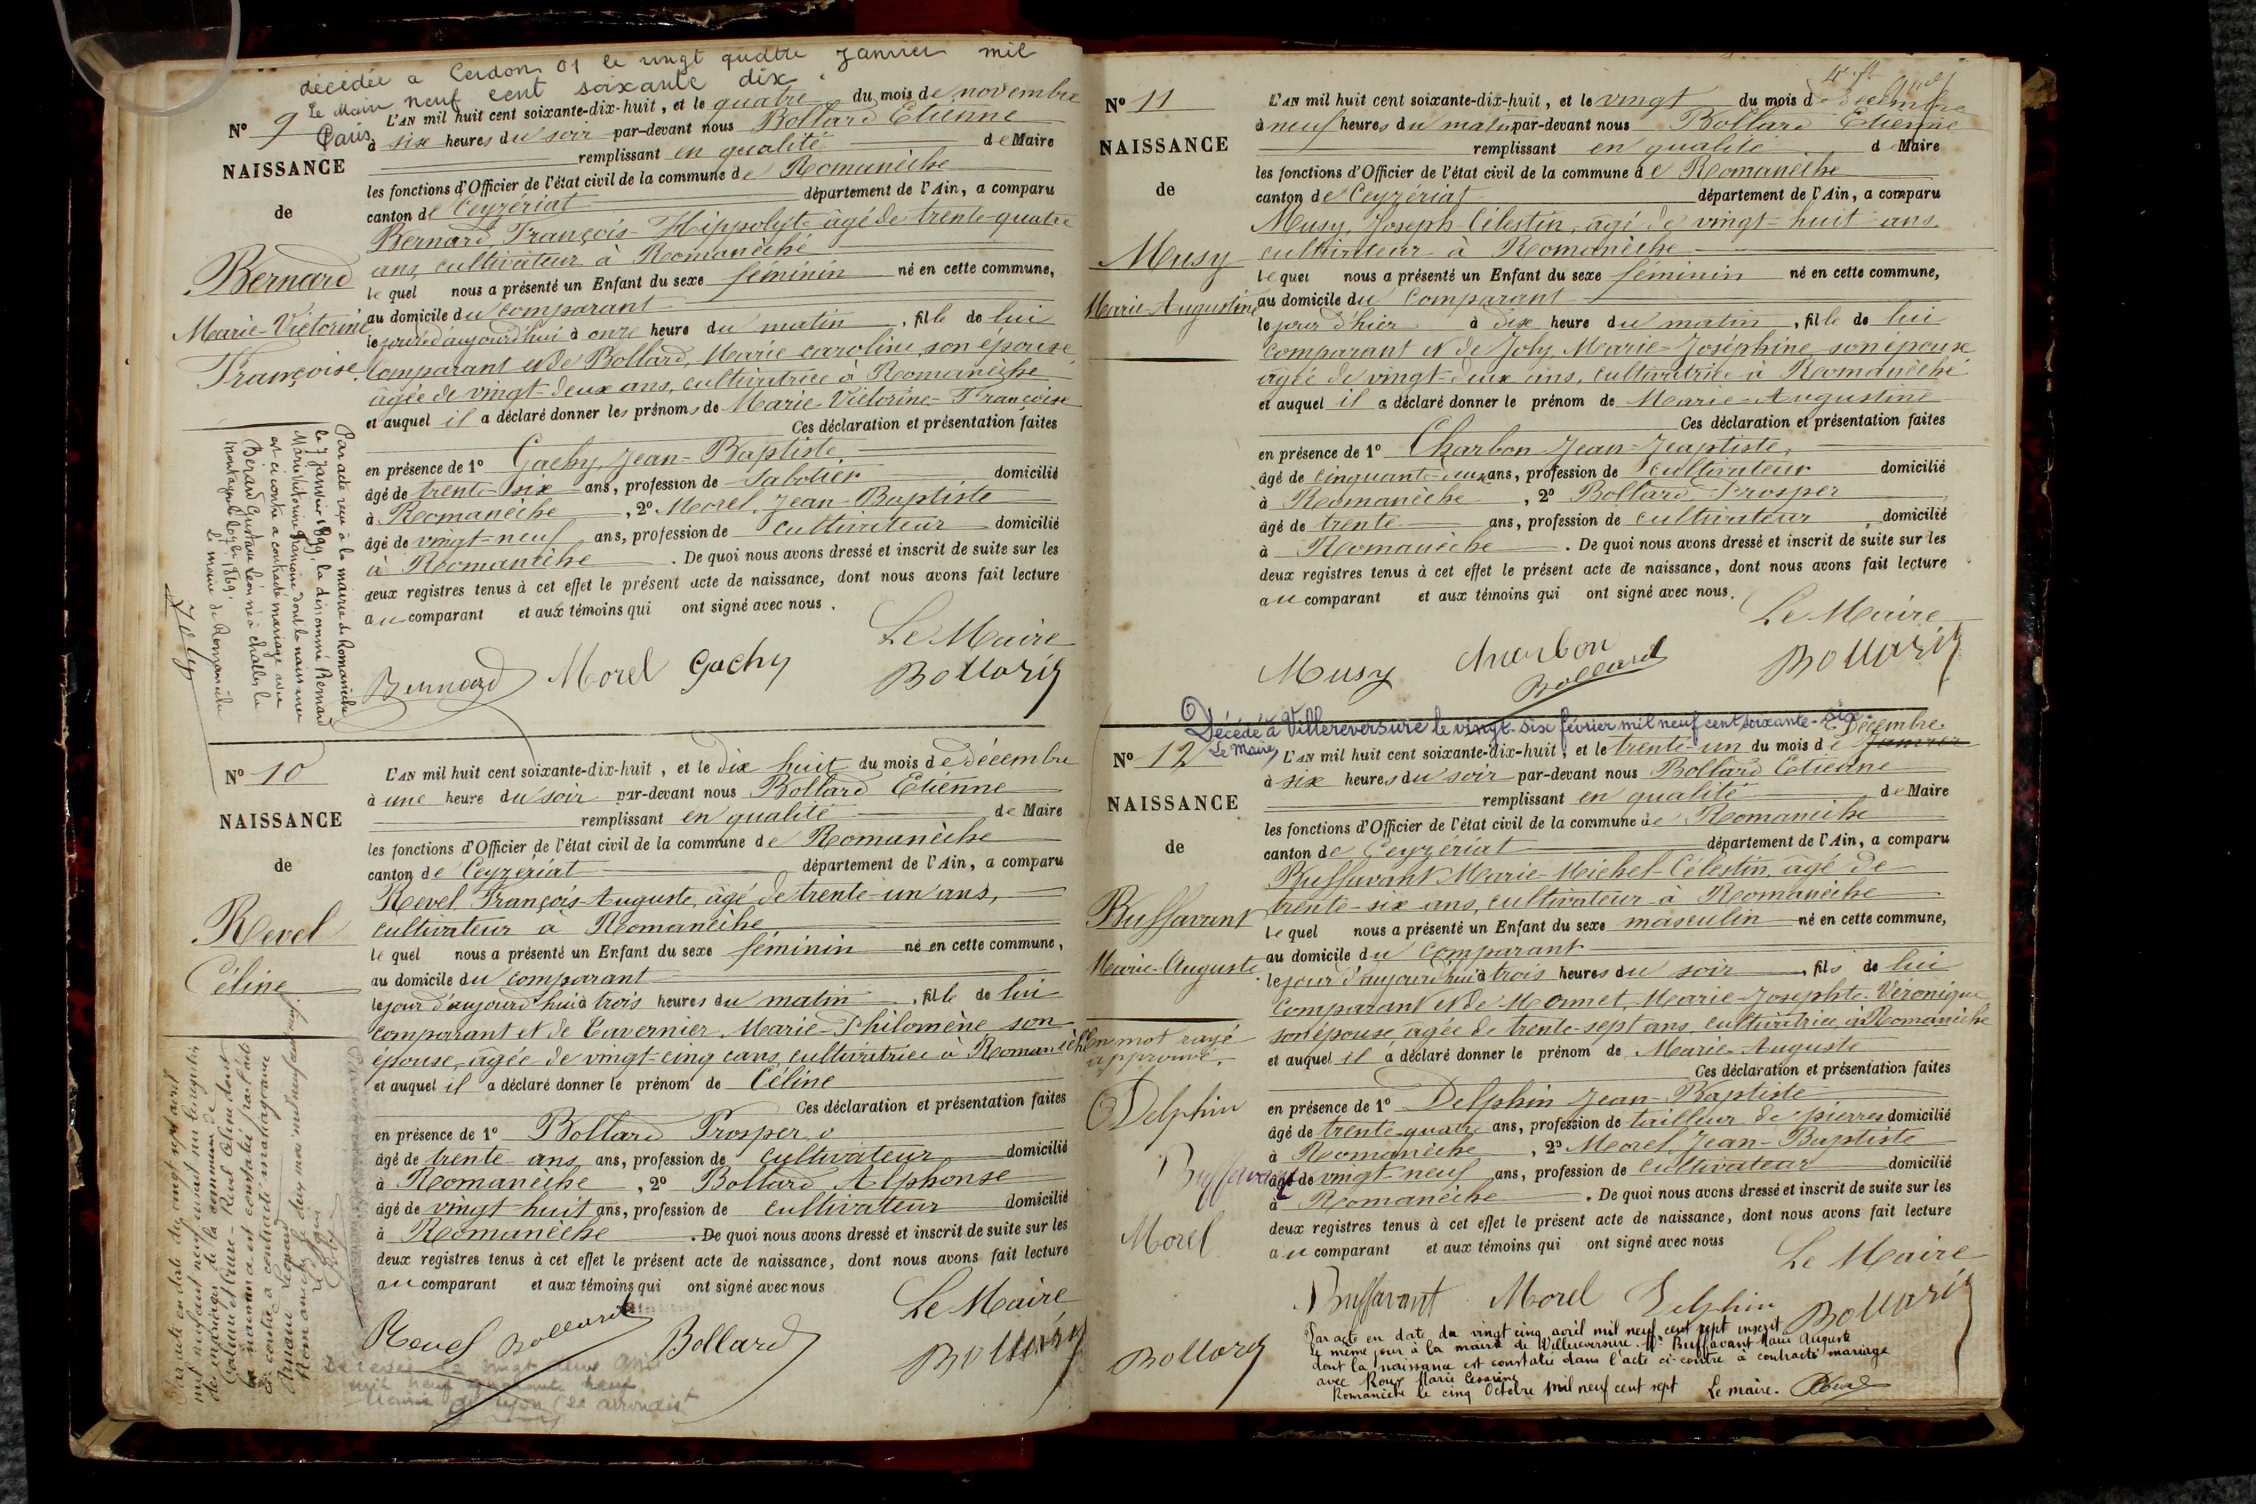 décédée a Cerdon 01 le vingt quatre Janvier mil
neuf cent soixante dix.
Le Maire
N° 9
NAISSANCE
de
Bernard
Marie-Victorine
Françoise
L'AN mil huit cent soixante-dix-huit, et le quatre du mois de novembre
à six heures du soir par-devant nous Bollard Etienne
remplissant en qualité de Maire
les fonctions d'Officier de l'état civil de la commune de Romanèche
canton de Ceyzériat département de l'Ain, a comparu
Bernard, François-Hippolyte âgé de trente-quatre
ans, cultivateur à Romanèche
lequel nous a présenté un Enfant du sexe féminin né en cette commune,
au domicile du comparant
le jourd d'aujourd'hui à onze heure du matin, fille de lui
comparant et de Bollard, Marie caroline son épouse,
agée de vingt-deux ans, cultivatrice à Romanèche
et auquel il a déclaré donner les prénoms de Marie-Victorine-Françoise
Ces déclaration et présentation faites
en présence de 1° Gachy, Jean-Baptiste,
âgé de trente-six ans, profession de Sabotier domicilié
à Romanèche, 2° Morel, Jean-Baptiste
âgé de vingt-neuf ans, profession de cultivateur domicilié
à Romanèche. De quoi nous avons dressé et inscrit de suite sur les
deux registres tenus à cet effet le présent acte de naissance, dont nous avons fait lecture
au comparant et aux témoins qui ont signé avec nous.
Le Maire
Bernard Morel Gachy Bollard
Par acte reçu à la mairie de Romanèche
le 7 Janvier 1899, la dénommé Bernard
Marie Victorine Françoise dont la naissance
est ci contre a contracté mariage avec
Bérard Gustave Léon né à Challes la
montagne le 1869.
Le maire de Romanèche
Joly
N° 10
NAISSANCE
de
Revel
Céline
L'AN mil huit cent soixante-dix-huit, et le dix huit du mois de décembre
à une heure du soir par-devant nous Bollard Etienne
remplissant en qualité de Maire
les fonctions d'Officier de l'état civil de la commune de Romanèche
canton de Ceyzériat département de l'Ain, a comparu
Revel François-Auguste, âgé de trente-un ans,
cultivateur à Romanèche
lequel nous a présenté un Enfant du sexe féminin né en cette commune,
au domicile du comparant
le jour d'aujourd'hui à trois heures du matin, fille de lui
comparant et de Tavernier, Marie-Philomène son
épouse, âgée de vingt-cinq ans cultivatrice à Romanèche
et auquel il a déclaré donner le prénom de Céline
Ces déclaration et présentation faites
en présence de 1° Bollard Prosper
âgé de trente ans ans, profession de cultivateur domicilié
à Romanèche, 2° Bollard Alphonse
âgé de vingt-huit ans, profession de cultivateur domicilié
à Romanèche. De quoi nous avons dressé et inscrit de suite sur les
deux registres tenus à cet effet le présent acte de naissance, dont nous avons fait lecture
au comparant et aux témoins qui ont signé avec nous
Le Maire
Revel Bollard Bollard Bollard
Par acte en date du vingt sept avril
mil neuf cent neuf
des mariages de la commune de
Revel Céline dont
la naissance est constatée par l'acte
ci contre a contracté mariage avec
Romanèche le deux mai mil neuf cent neuf
N° 11
NAISSANCE
de
Musy
Marie-Augustine
L'AN mil huit cent soixante-dix-huit, et le vingt du mois de décembre
à neuf heures du matin par-devant nous Bollard Etienne
remplissant en qualité de Maire
les fonctions d'Officier de l'état civil de la commune de Romanèche
canton de Ceyzériat département de l'Ain, a comparu
Musy, Joseph Célestin, âgé de vingt-huit ans,
cultivateur à Romanèche
lequel nous a présenté un Enfant du sexe féminin né en cette commune,
au domicile du comparant
le jour d'hier à dix heure du matin, fille de lui
comparant et de Joly, Marie-Joséphine son épouse
âgée de vingt-deux ans, cultivatrice à Romanèche
et auquel il a déclaré donner le prénom de Marie-Augustine
Ces déclaration et présentation faites
en présence de 1° Charbon Jean-Baptiste,
âgé de cinquante-deux ans, profession de cultivateur domicilié
à Romanèche, 2° Bollard Prosper
âgé de trente ans, profession de cultivateur domicilié
à Romanèche. De quoi nous avons dressé et inscrit de suite sur les
deux registres tenus à cet effet le présent acte de naissance, dont nous avons fait lecture
au comparant et aux témoins qui ont signé avec nous.
Le Maire
Musy Charbon Bollard Bollard
Décédé à Villereversure le vingt-six février mil neuf cent soixante-six.
Le Maire,
N° 12
NAISSANCE
de
Buffavant
Marie-Auguste
Un mot rayé
approuvé.
Delphin
Buffavant
Morel
Bollard
Décembre.
L'AN mil huit cent soixante-dix-huit, et le trente-un du mois de Janvier
à six heures du soir par-devant nous Bollard Etienne
remplissant en qualité de Maire
les fonctions d'Officier de l'état civil de la commune de Romanèche
canton de Ceyzériat département de l'Ain, a comparu
Buffavant Marie-Michel-Célestin, âgé de
trente-six ans, cultivateur à Romanèche
lequel nous a présenté un Enfant du sexe masculin né en cette commune,
au domicile du comparant
le jour d'aujourd'hui à trois heures du soir, fils de lui
comparant et de Monnet, Marie-Josephte-Véronique
son épouse, âgée de trente-sept ans, cultivatrice à Romanèche
et auquel il a déclaré donner le prénom de Marie-Auguste
Ces déclaration et présentation faites
en présence de 1° Delphin Jean-Baptiste
âgé de trente-quatre ans, profession de tailleur de pierres domicilié
à Romanèche, 2° Morel, Jean-Baptiste
âgé de vingt-neuf ans, profession de cultivateur domicilié
à Romanèche. De quoi nous avons dressé et inscrit de suite sur les
deux registres tenus à cet effet le présent acte de naissance, dont nous avons fait lecture
au comparant et aux témoins qui ont signé avec nous
Le Maire
Buffavant Morel Delphin Bollard
Par acte en date du vingt cinq avril mil neuf cent sept inscrit
le même jour à la mairie de Villereversure. Mr Buffavant Marie Auguste
dont la naissance est constatée dans l'acte ci-contre a contracté mariage
avec Roux Marie Césarine
Romanèche le cinq Octobre mil neuf cent sept Le maire.